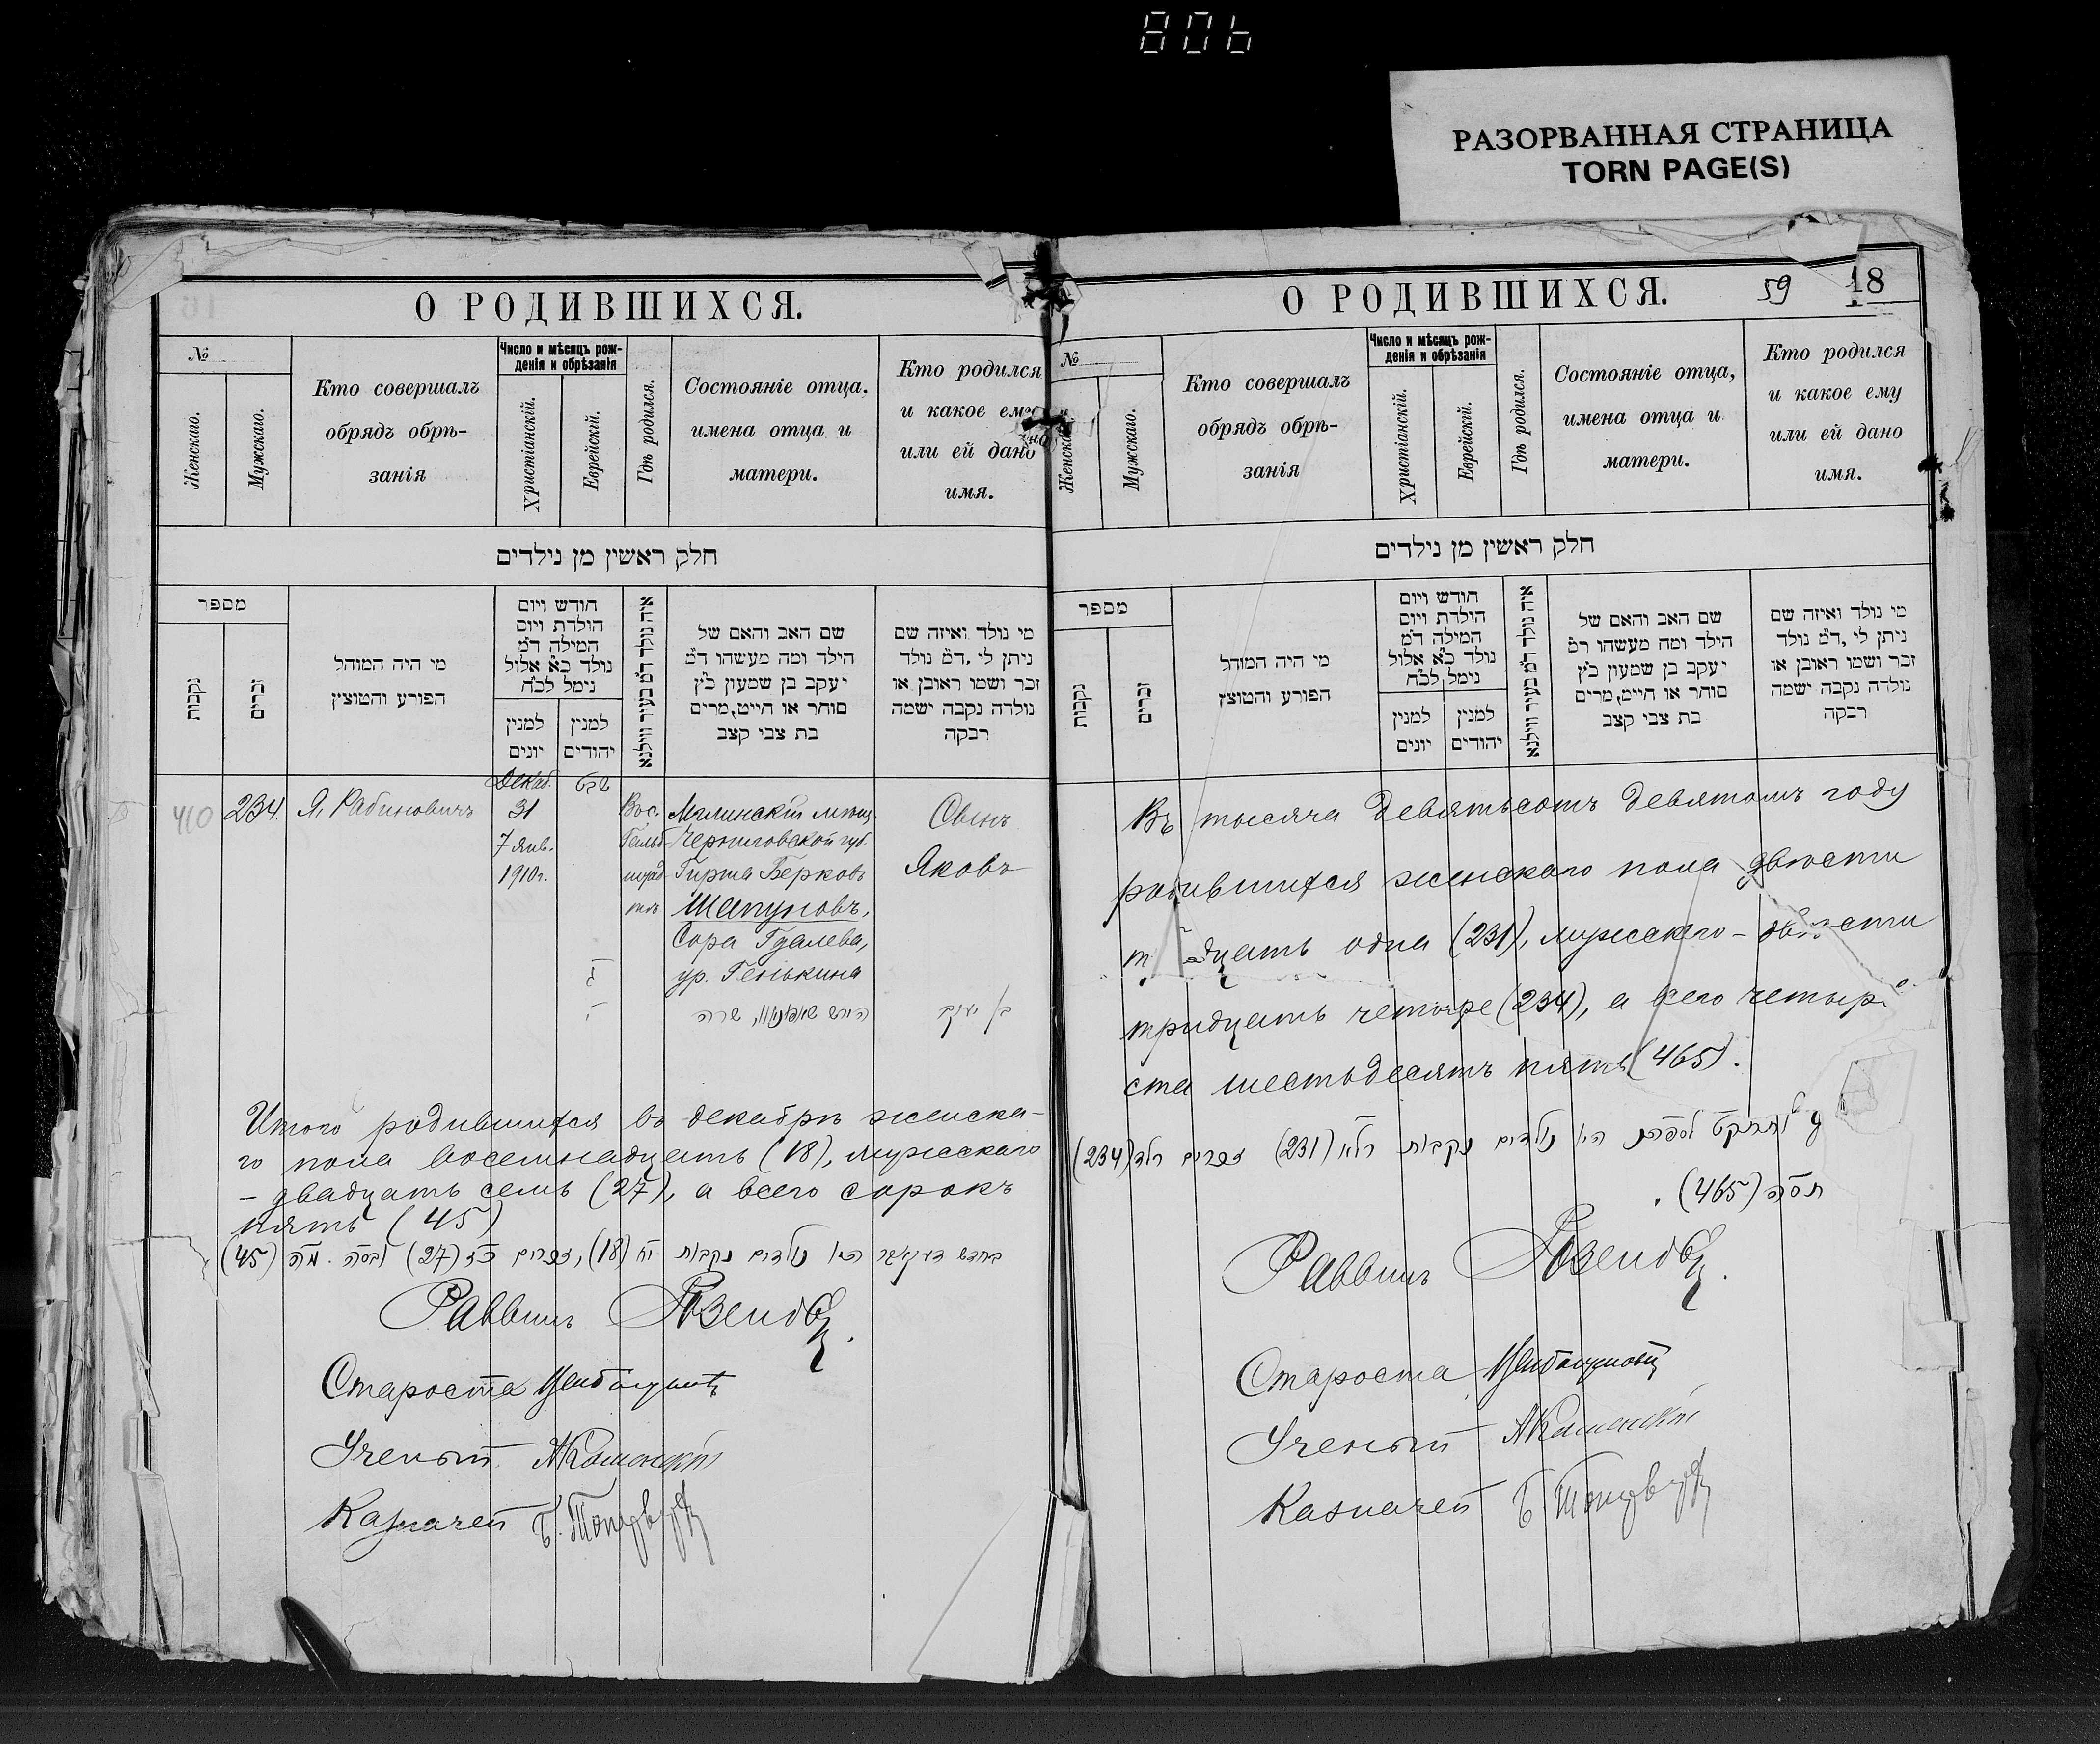 806
РАЗОРВАННАЯ СТРАНИЦА
TORN PAGE(S)
О РОДИВШИХСЯ.
№
Женскаго.
Мужскаго.
Кто совершалъ
обрядъ обрѣ-
занія
Число и мѣсяцъ рож-
денія и обрѣзанія
Христіанскій.
Еврейскій.
Гдѣ родился.
Состояніе отца.
имена отца и
матери.
Кто родился
и какое ему
или ей дано
имя.
חלק ראשין מן נילדים
מספר
נקבות
זכרים
מי היה המוהל
הפורע והמוצץ
חודש ויום
הולדת ויום
המילה ד״מ
נולד כ״א אלול
נימל לכ״ח
למנין
יונים
למנין
יהודים
איה נולד ד״מ בעיר ווילנא
שם האב והאם של
הילד ומה מעשהו ד״מ
יעקב בן שמעון כ״ץ
סוחר או חייט, מרים
בת צבי קצב
מי נולד ואיזה שם
ניתן לי, ד״מ נולד
זכר ושמו ראובן או
נולדה נקבה ישמה
רבקה
410
234
Я. Рабиновичъ
Декаб.
31
7 янв.
1910 г.
שבט
Гельс-
Мглинскій мѣщ.
Черниговской губ.
Гирша Берковъ
Шапуновъ,
Сора Гдалева,
ур. Генькина
שרה
Сынъ
Яковъ
בן יעקב
Итого родившихся въ декабрѣ женска-
го пола восемнадцать (18), мужскаго
- двадцать семь (27), а всего сорокъ
пять (45)
בחדש דעקאבר היו נולדים נקבות יח (18), זכרים כז (27) ובסה. מה (45)
Раввинъ
Староста
Ученый А. Каменскій
Казначей Б.
О РОДИВШИХСЯ.
59
18
№
Женскаго
Мужскаго.
Кто совершалъ
обрядъ обрѣ-
занія
Число и мѣсяцъ рож-
денія и обрѣзанія
Христіанскій.
Еврейскій.
Гдѣ родился.
Состояніе отца,
имена отца и
матери.
Кто родился
и какое ему
или ей дано
имя.
חלק ראשין מן נילדים
מספר
נקבות
זכרים
מי היה המוהל
הפורע והמוצץ
חודש ויום
הולדת ויום
המילה ד״מ
נולד כ״א אלול
נימל לכ״ח
למנין
יונים
למנין
יהודים
איה נולד ד״מ בעיר ווילנא
שם האב והאם של
הילד ומה מעשהו ד״מ
יעקב בן שמעון כ״ץ
סוחר או חייט, מרים
בת צבי קצב
מי נולד ואיזה שם
ניתן לי, ד״מ נולד
זכר ושמו ראובן או
נולדה נקבה ישמה
רבקה
Въ тысяча девятьсотъ девятомъ году
родившихся женскаго пола двѣсти
тридцать одна (231), мужскаго - двѣсти
тридцать четыре (234), а всего четыре
ста шестьдесятъ пять (465).
היו נולדים נקבות רלא (231) זכרים רלד (234)
תסה (465).
Раввинъ
Староста
Ученый А. Каменскій
Казначей Б.